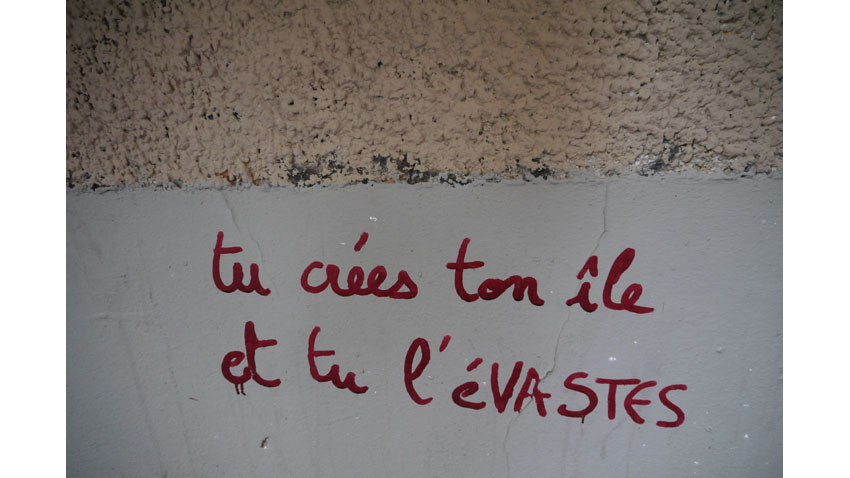 tu crées ton île
et tu l'éVASTES